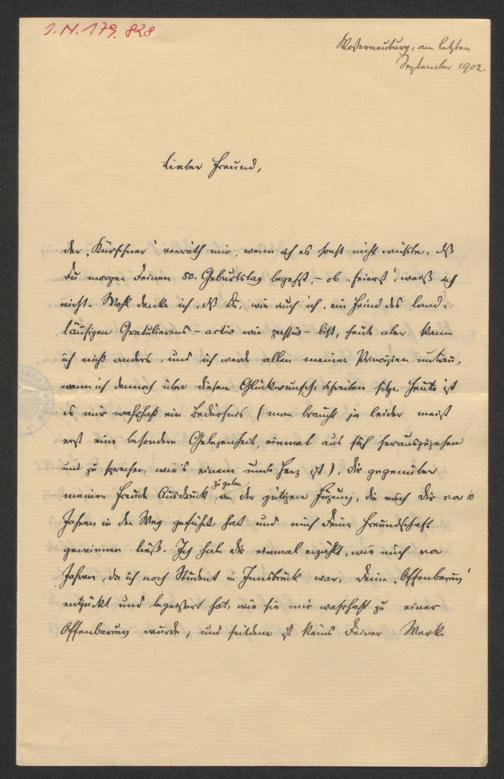 I.N. 179.828
Klosterneuburg, am letzten
September 1902
Lieber Freund,
der „Kürschner" verräth mir, wenn ich es sonst nicht wüßte, daß
Du morgen Deinen 50. Geburtstag begehst, – ob „feierst", weiß ich
nicht. Wohl denke ich, daß Du, wie auch ich, ein Feind des land-
läufigen Gratulierens – activ wie passiv – bist, heute aber kann
ich nicht anders, und ich werde allen meinen Principien untreu,
wenn ich dennoch über diesen Glückwunsch-Schreiben sitze. Heute ist
es mir wahrhaft ein Bedürfnis (man braucht ja leider meist
erst eine besondere Gelegenheit, einmal aus sich herauszugehen
und zu sprechen, wie's einem ums Herz ist), Dir gegenüber
meiner Freude Ausdruck zu geben an der gütigen Fügung, die mich Dir vor 10
Jahren in den Weg geführt hat und mich Deine Freundschaft
gewinnen ließ. Ich habe Dir einmal erzählt, wie mich vor
Jahren, da ich noch Student in Innsbruck war, Deine „Offenbarung"
entzückt und begeistert hat, wie sie mir wahrhaft zu einer
Offenbarung wurde, und seitdem ist keins Deiner Werke